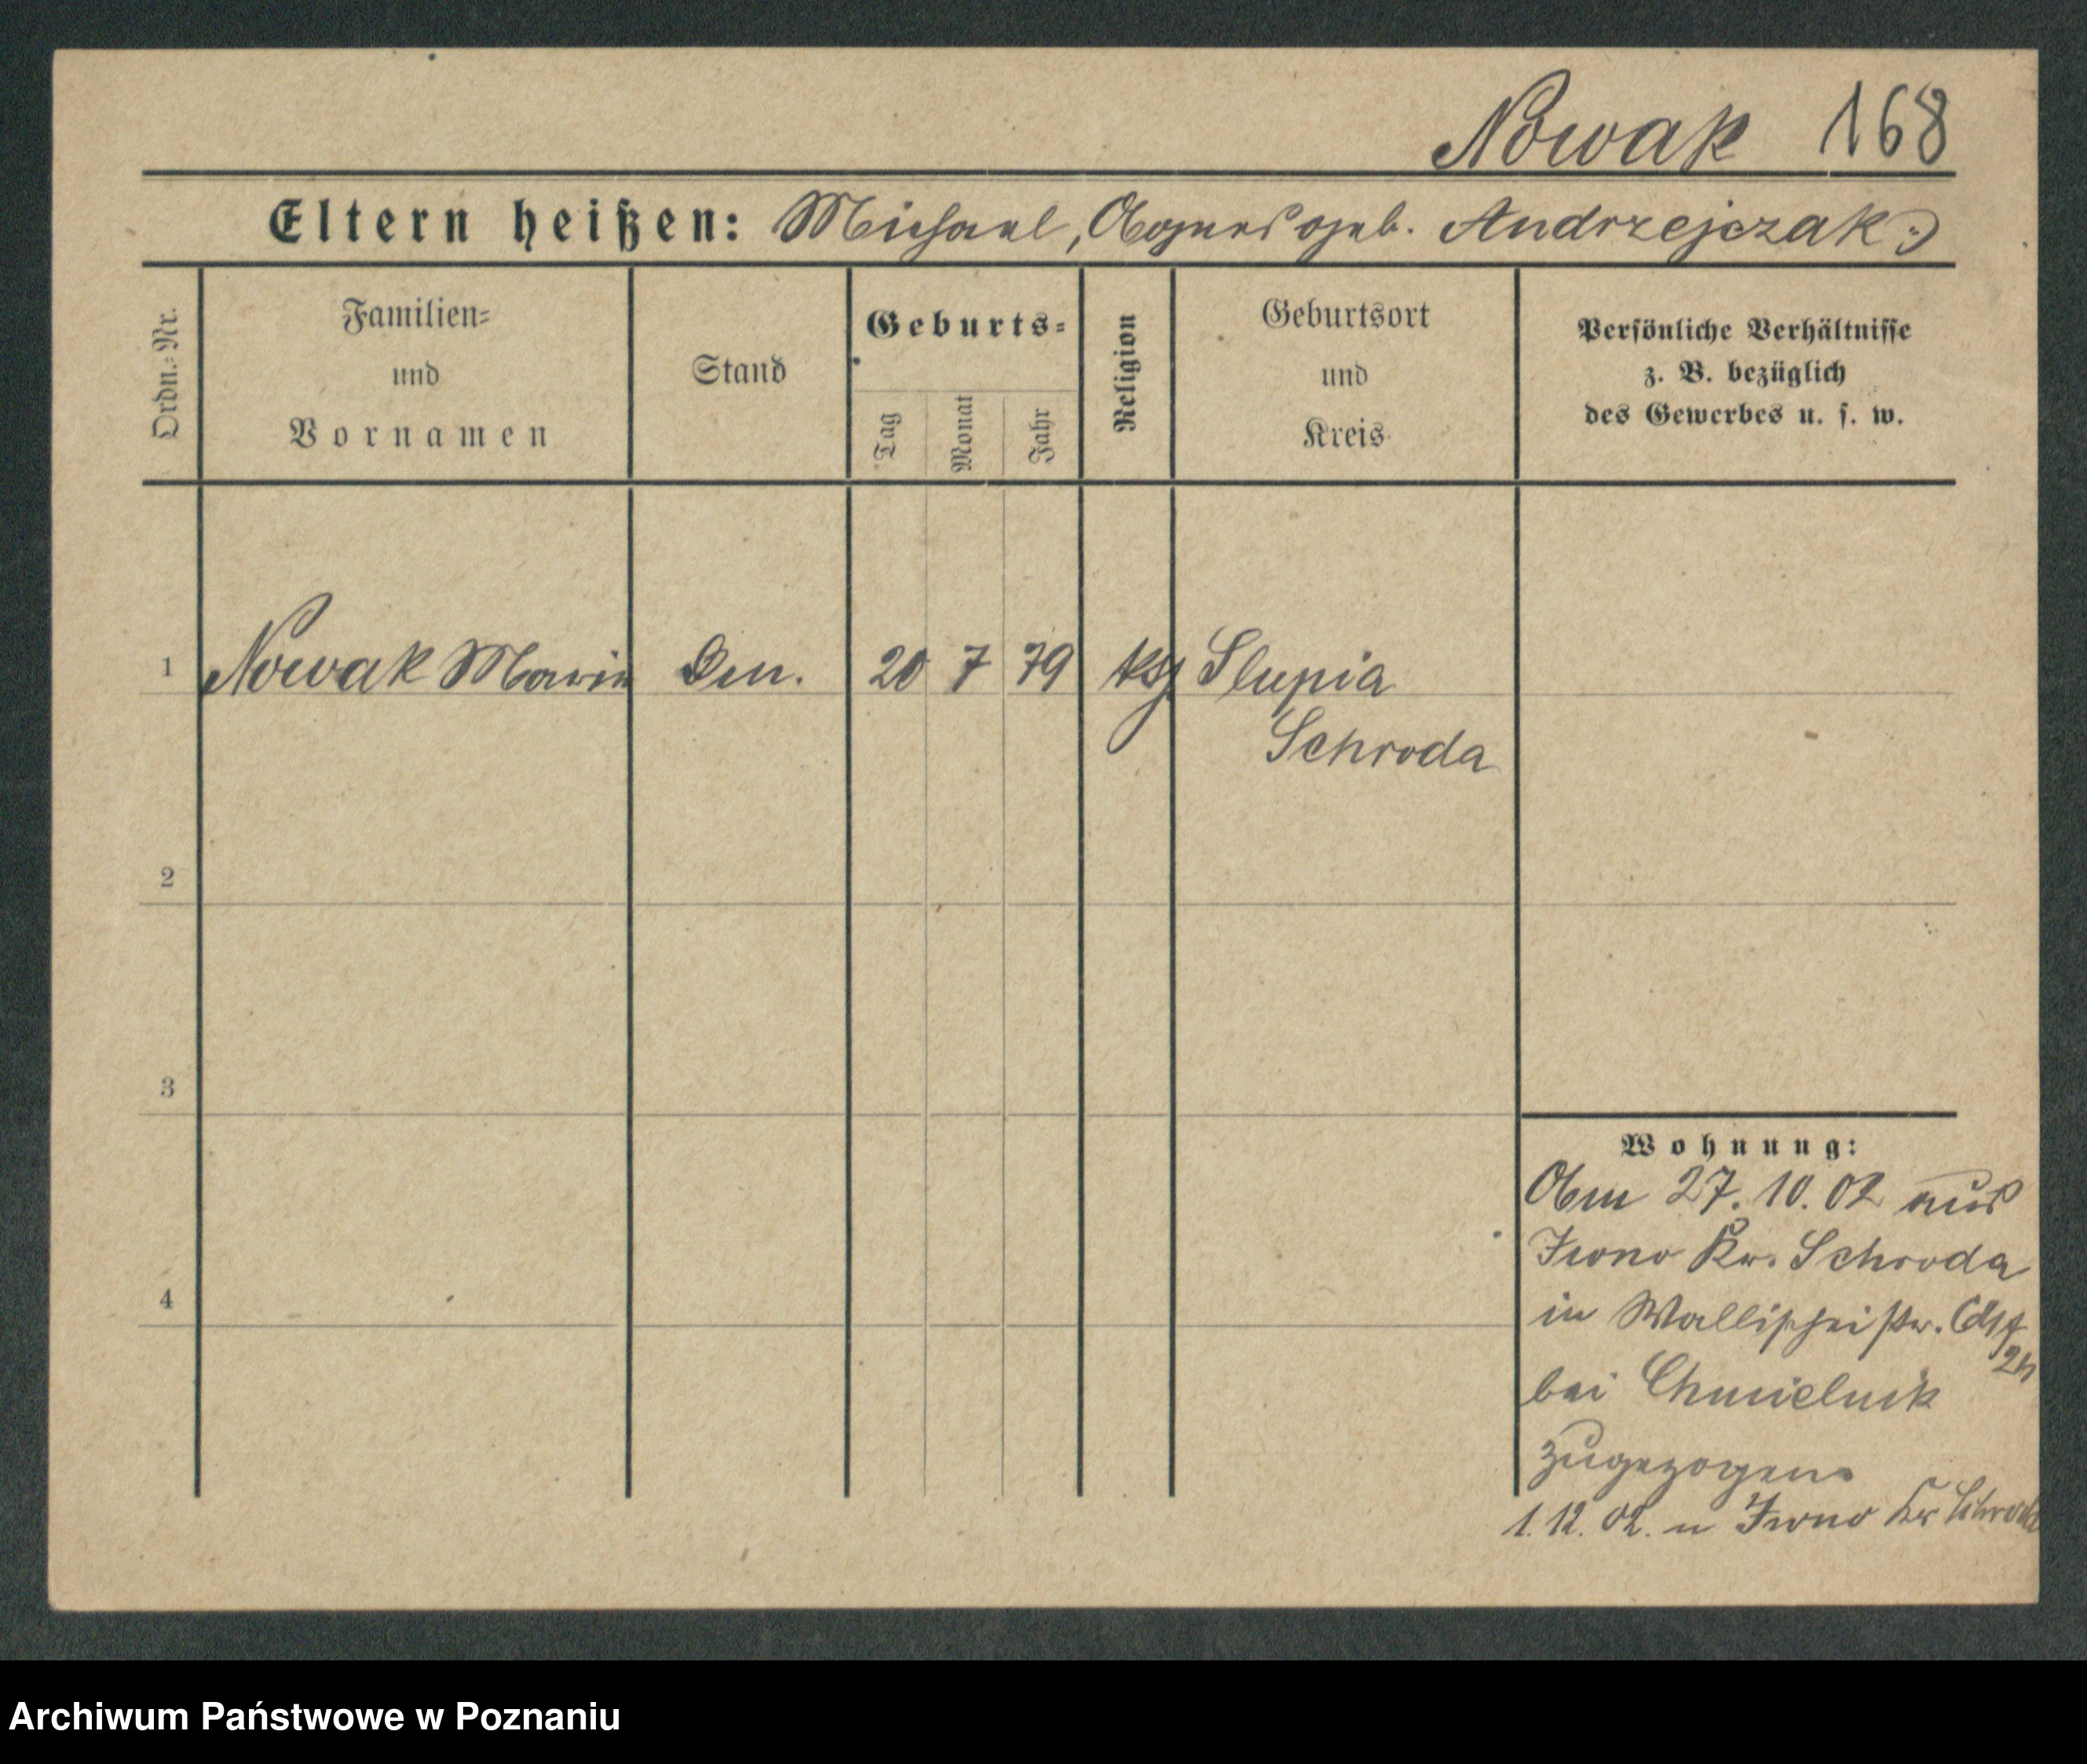 Nowak 168
Eltern heißen: Michael, Agnes geb. Andrzejczak
Ordn.-Nr.
Familien-
und
Vornamen
Stand
Geburts-
Tag
Monat
Jahr
Religion
Geburtsort
und
Kreis
Persönliche Verhältnisse
z. B. bezüglich
des Gewerbes u. s. w.
1 Nowak Marie 20 7 79 Slupia
Schroda
2
3
4
Wohnung:
Am 27. 10. 02 aus
Iwno Kr. Schroda
in Wallischei
bei Chmielnik
zugezogen.
1. 12. 02. n Iwno Kr Schroda
Archiwum Państwowe w Poznaniu